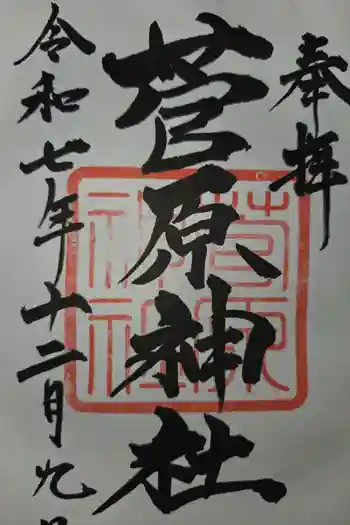 奉拝
菅原神社
菅原
神社
令和七年十二月九日